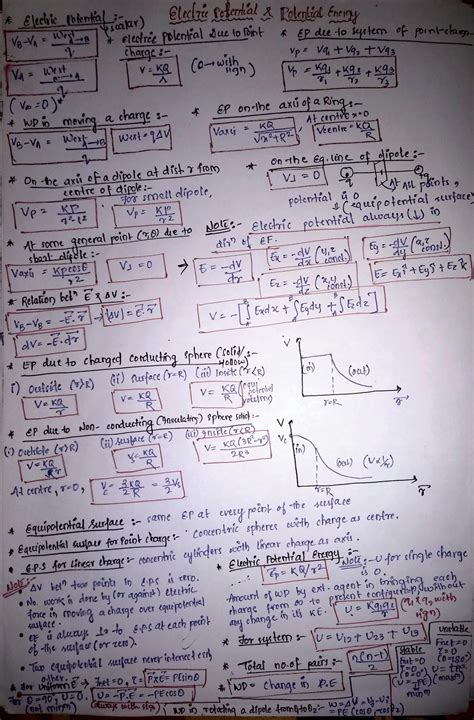 Electric Potential & Potential Energy
* Electric Potential :- (scalar)
V_B - V_A = W_ext A→B / q
V_A = W_ext / q
(V_∞ = 0)
* Electric Potential Due to Point charge :-
V = KQ/r (Q → with sign)
* EP due to system of point charge
V_P = V_q1 + V_q2 + V_q3
V_P = Kq1/r1 + Kq2/r2 + Kq3/r3
* WD in moving a charge :-
V_B - V_A = W_ext A→B / q
W_ext = qΔV
* EP on the axis of a Ring :-
V_axis = KQ/√(x²+R²)
At centre x=0
V_centre = KQ/R
* On the axis of a dipole at dist r from centre of dipole :-
For small dipole,
V_P = KP/r²
* On the Eq. line of dipole :-
V⊥ = 0
At all points, potential is 0
(equipotential surface)
* At some general point (r,θ) due to short dipole :-
V_axis = KPcosθ/r²
V⊥ = 0
Note :- Electric potential always (↓) in dirn of EF.
E = -dV/dr
E_x = -dV/dx (y,z const.)
E_y = -dV/dy
E_z = -dV/dz (x,y const.)
E = E_x î + E_y ĵ + E_z k̂
* Relation betn E & ΔV :-
|ΔV| = E.r
dV = -E.dr
V = -[∫E_x dx + ∫E_y dy + ∫E_z dz]
* EP due to charged conducting sphere (solid/Hollow)
i) Outside (r>R) (ii) surface (r=R) (iii) Inside (r<R)
V = KQ/r V = KQ/R V = KQ/R
V
(in) (out)
r=R r
* EP due to Non-conducting (Insulating) sphere solid :-
(i) Outside (r>R) (ii) surface (r=R) (iii) Inside (r<R)
V = KQ/R V = KQ(3R²-r²)/2R³
At centre, r=0, V_c = 3/2 KQ/R = 3/2 V_s
V
V_c
(in) (out) (V∝1/r)
r=R r
* Equipotential surface :- same EP at every point of the surface
* Equipotential surface for Point charge :- Concentric spheres with charge as centre.
* E.P.S for linear charge :- concentric cylinders with linear charge as axis.
Note :-
• ΔV betn two points in E.P.S is zero.
• No work is done by (or against) electric force in moving a charge over equipotential surface.
• EF is always ⊥ to E.P.S at each point of the surface (or zero).
• Two equipotential surface never intersect each other.
* Electric Potential Energy :-
Note :- U for single charge is 0.
Amount of WD by ext. agent in bringing each charge from ∞ to present without any change in its KE.
(q1 & q2 with sign)
* For system :- U = U12 + U23 + U13
* Total no. of pairs :- n(n-1)/2
* WD = change in P.E
stable
unstable
* For Uniform E → Fnet = 0, τ = PxE = PEsinθ
U = -P.E = -PEcosθ
(always with sign)
* WD in rotating a dipole from θ1 to θ2 :-
W = ΔU = U_f - U_i
= PE (cosθ1 - cosθ2)